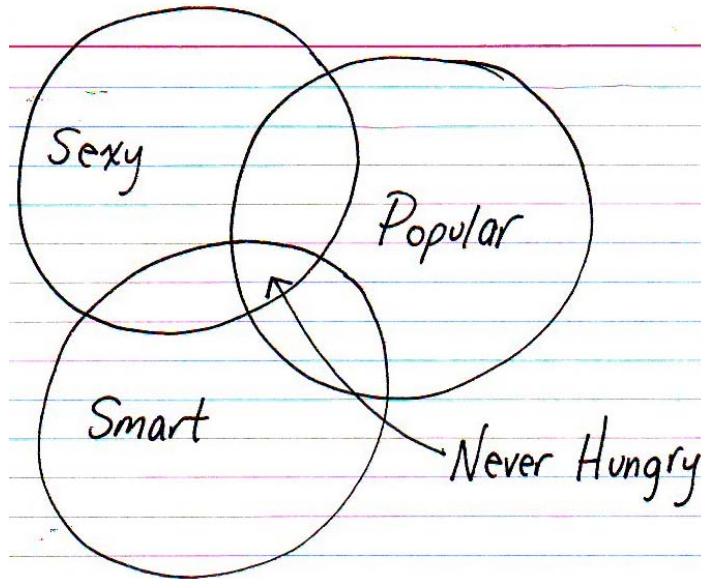 Sexy
Popular
Smart
Never Hungry